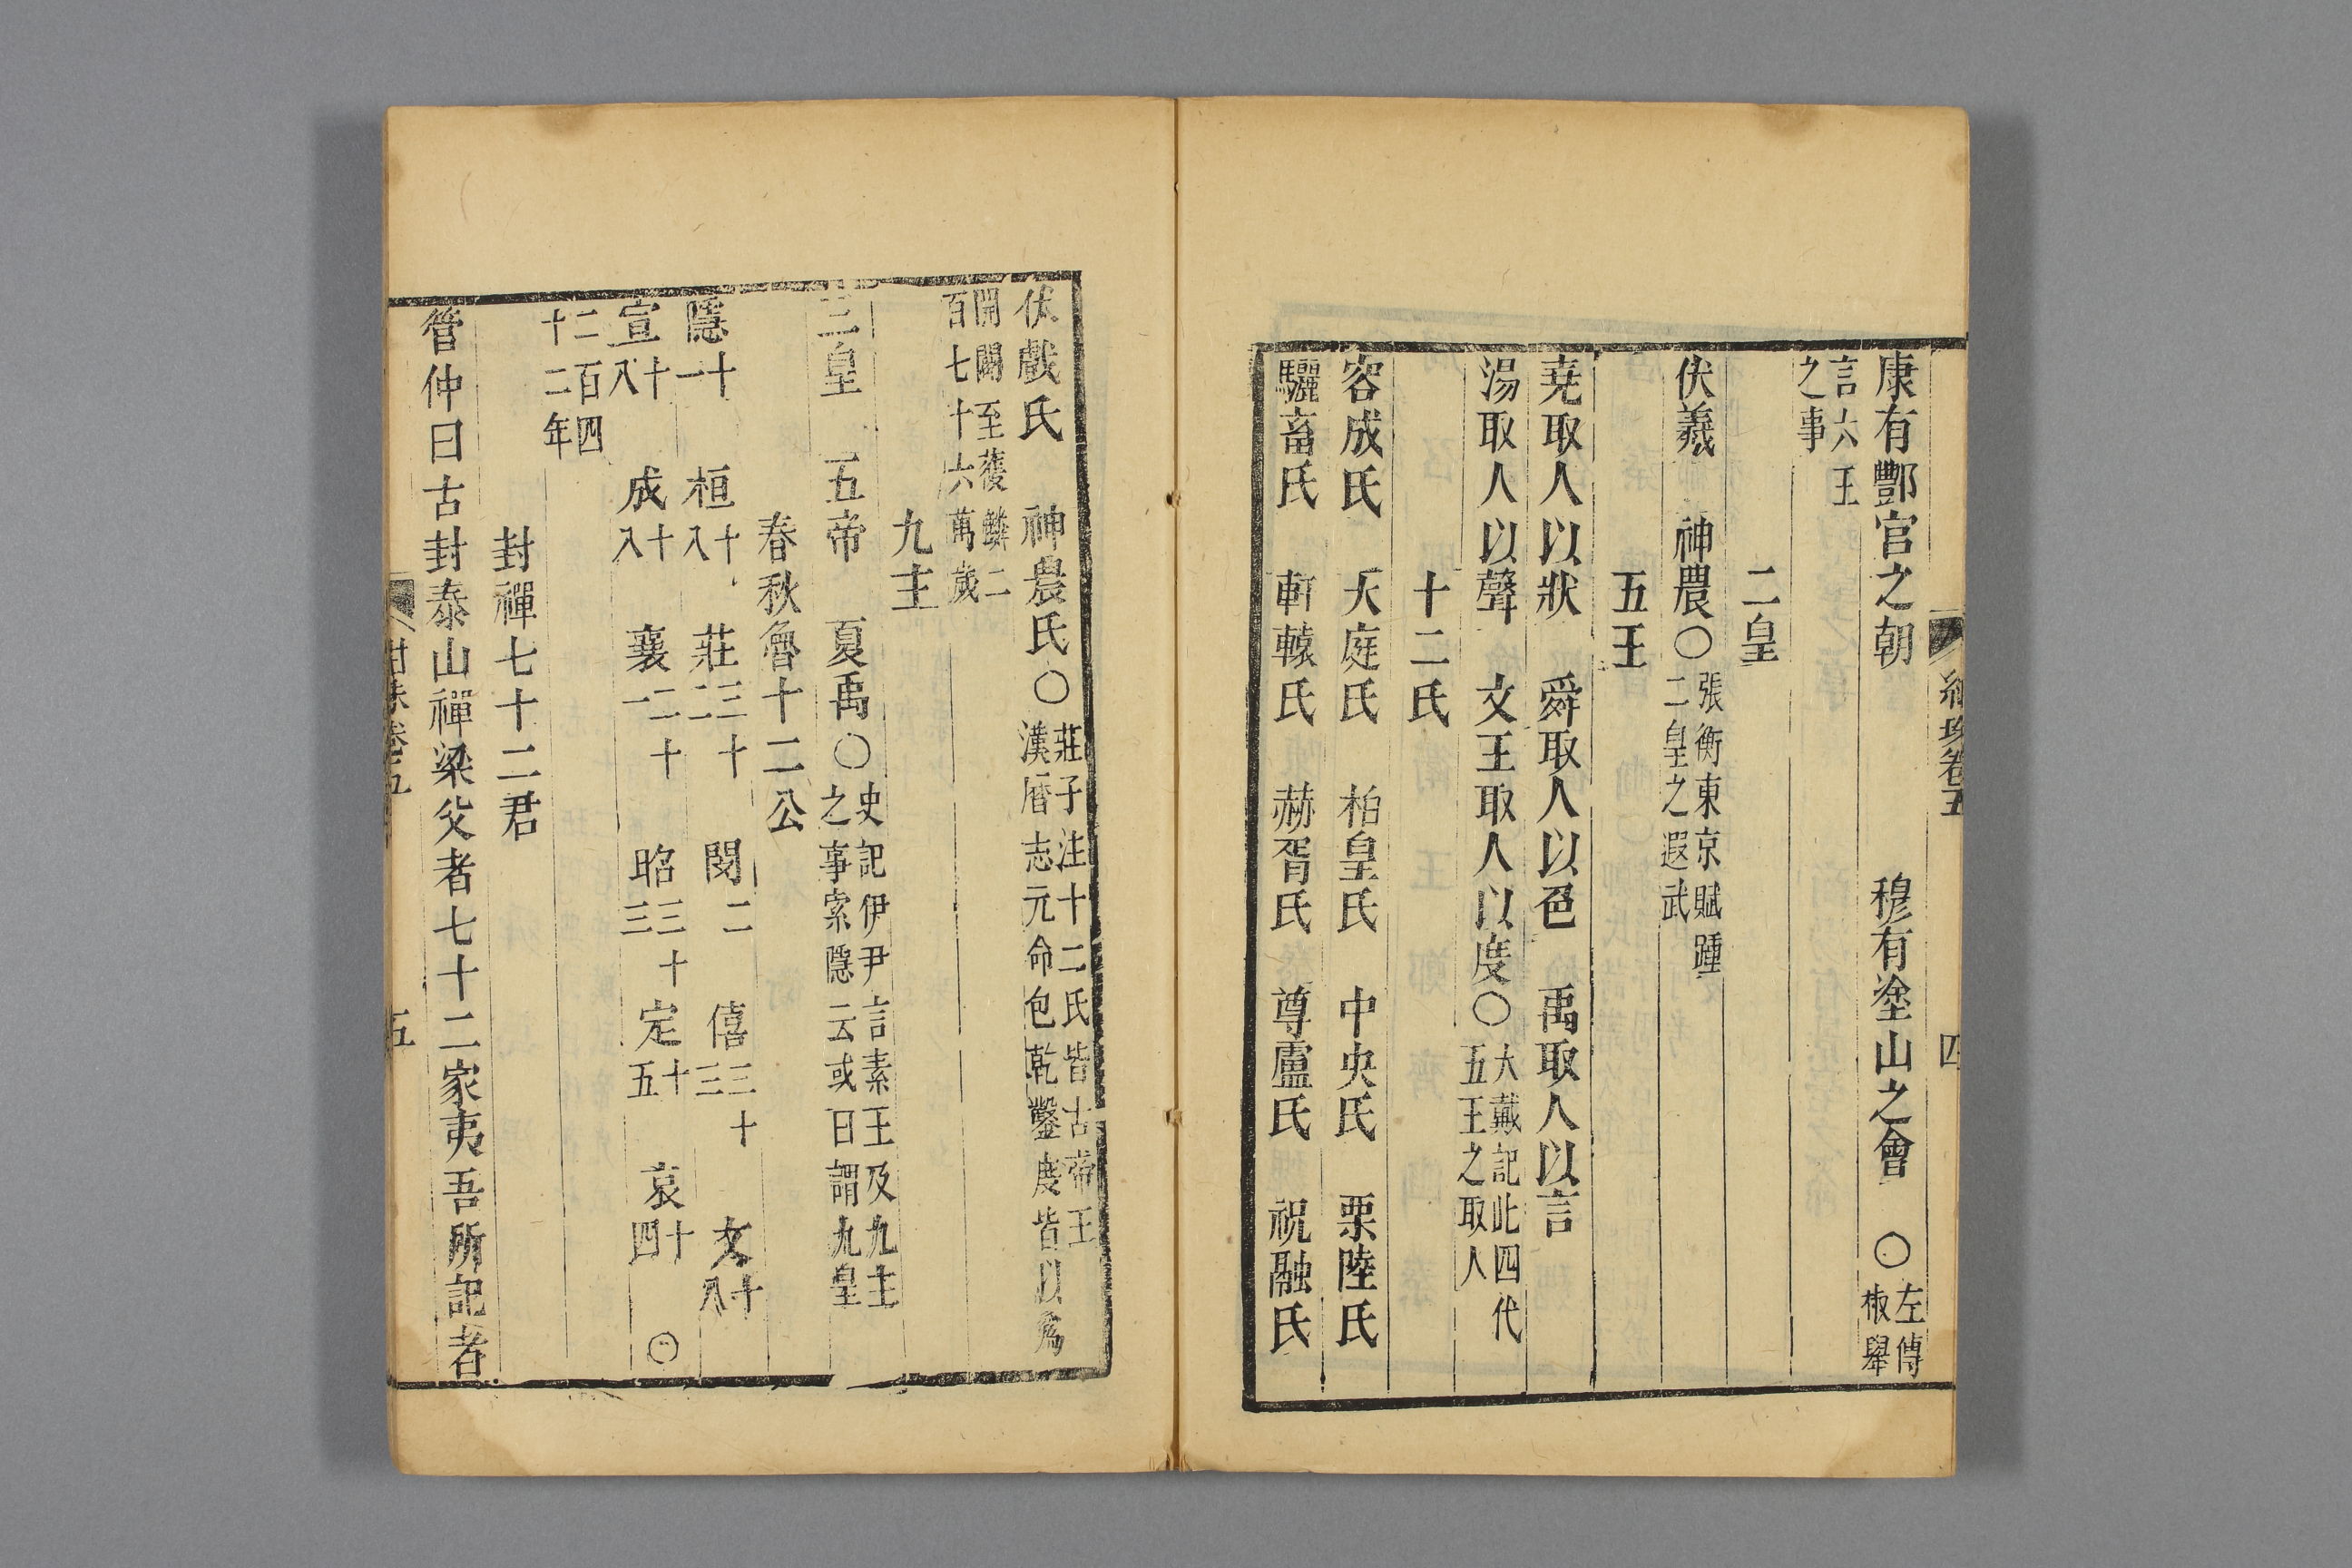 康有酆官之朝　穆有塗山之會　○左傳椒舉
言六王之事
二皇
伏羲　神農○張衡東京賦踵二皇之遐武
五王
堯取人以狀　舜取人以色　禹取人以言
湯取人以聲　文王取人以度○大戴記此四代五王之取人
十二氏
容成氏　大庭氏　柏皇氏　中央氏　栗陸氏
驪畜氏　軒轅氏　赫胥氏　尊盧氏　祝融氏
卷五
四
伏戲氏　神農氏○莊子注十二氏皆古帝王漢曆志元命包乾鑿度皆以為
開闢至獲麟二百七十六萬歲
九主
三皇　五帝　夏禹○史記伊尹言素王及九主之事索隱云或曰謂九皇
春秋魯十二公
隱十一　桓十八　莊三十二　閔二　僖三十三　文十八
宣十八　成十八　襄二十一　昭三十三　定十五　哀十四　○
二百四十二年
封禪七十二君
管仲曰古封泰山禪梁父者七十二家夷吾所記者
卷五
五